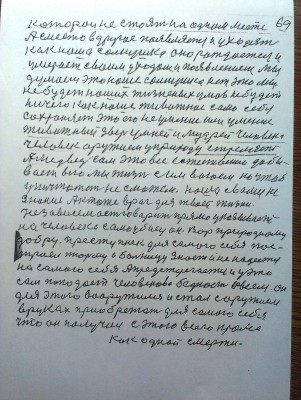 которой не стоят на одном месте 69
А место в другое появляется и уходит
как наша солнушка оно рождается и
умерает своим уходом и появлением. Мы
думаем это наше солнушка нет этому
не будет наших тженых умов не будет
ничего как наше животное само себя
сохроняет это его не умение или умение
животный зверь умней и мудрей человека
человек оружием у природу стреляет
А медведь сам это все естественно добы-
вает его мы тжизни с им воюем но так
уничтожет не сможем. наша с вами не
знание Ак тоже враг для твоей тжизни.
Независемость говарит прямо указывает
на человека самоубиец он. Вор природному
добру. преступник для самого себя пос-
троел тюрму и больницу Знает и не надеется
на самого себя А предстерегается и у это
сам попадает человеково бедность овсем. он
для этого вооружился и стал с оружием
в руках приобретат для самого себя
что он получил с этого всего кроме
как одной смерти.